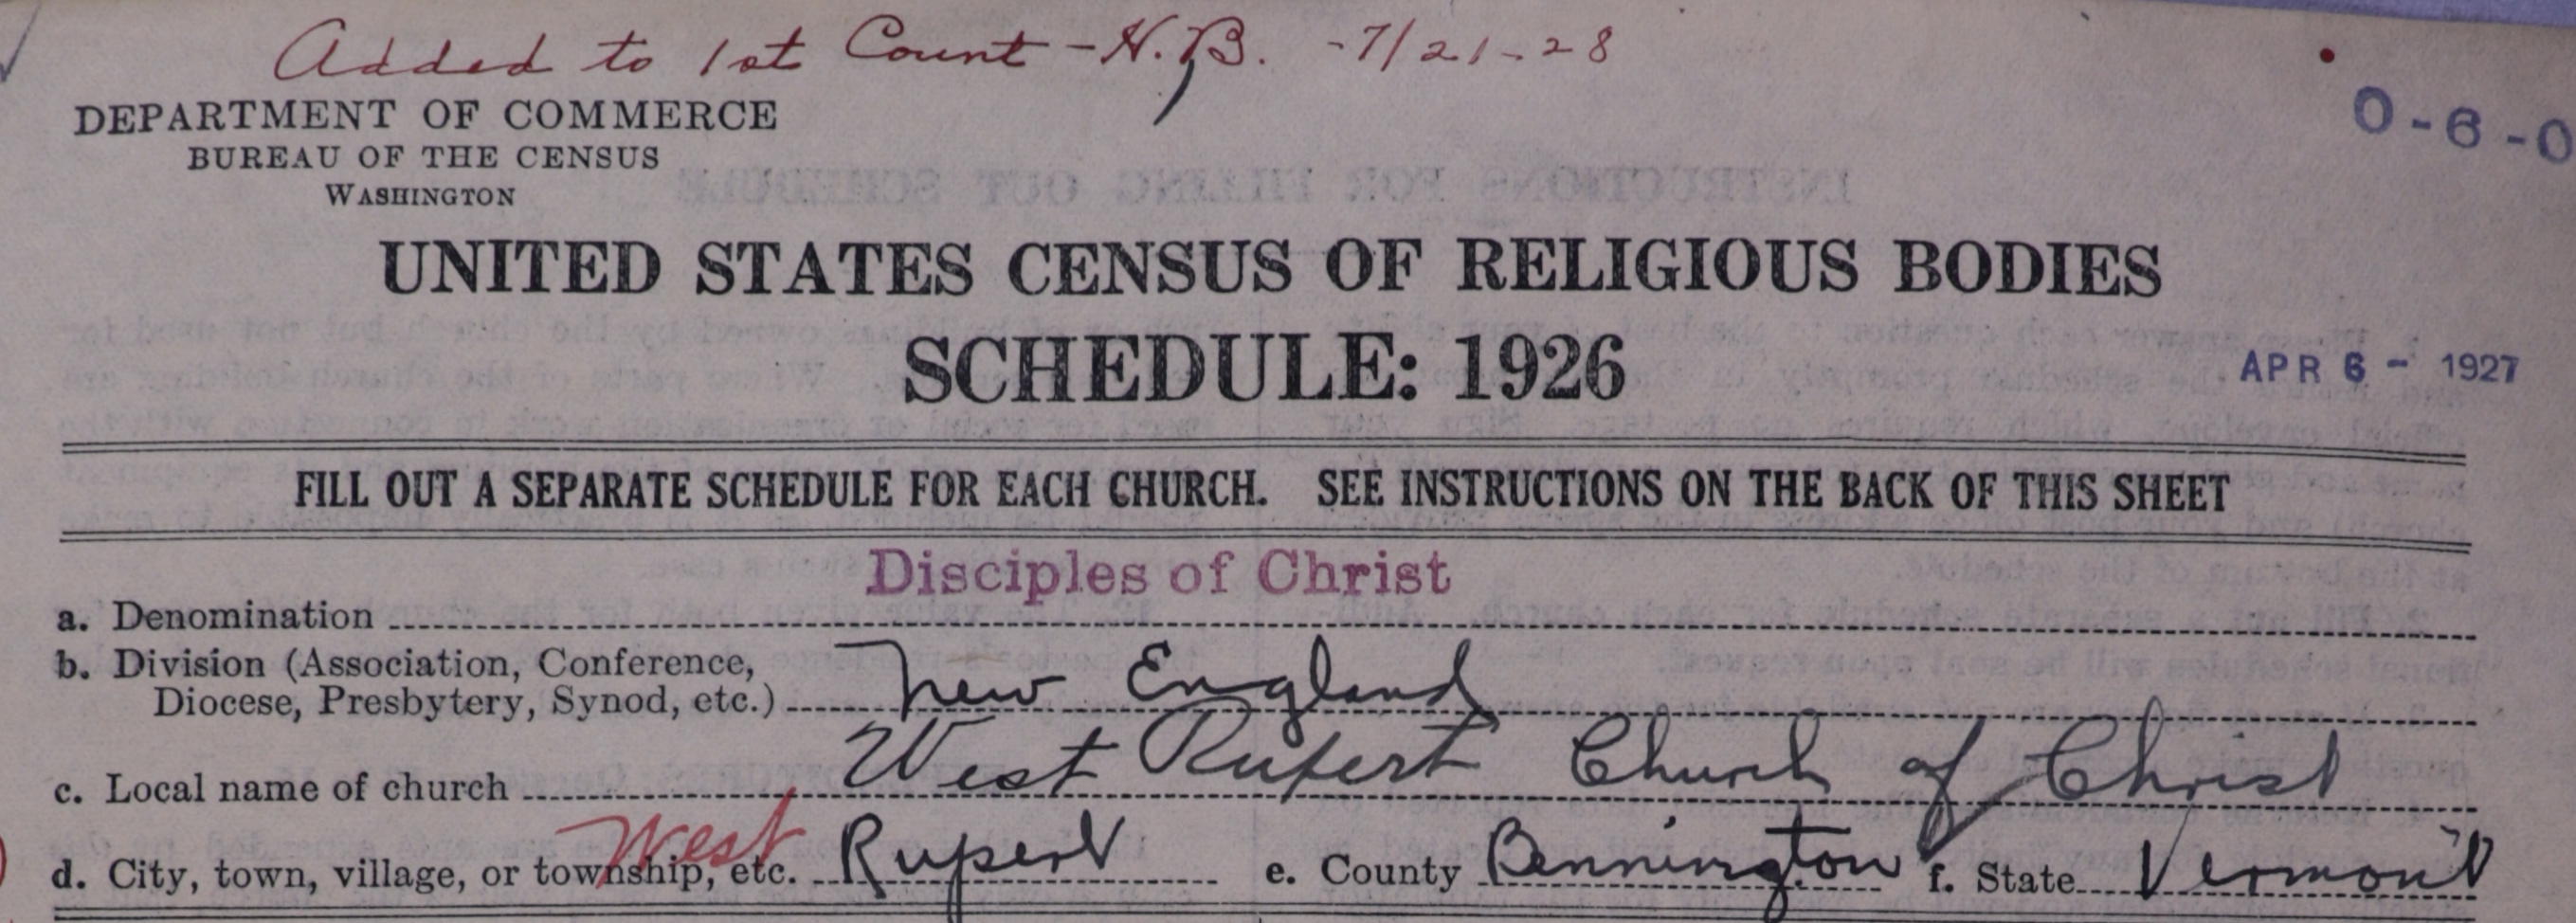 Added to 1st Count - H.B. - 7/21-28
DEPARTMENT OF COMMERCE
BUREAU OF THE CENSUS
WASHINGTON
0-6-0
UNITED STATES CENSUS OF RELIGIOUS BODIES
SCHEDULE: 1926
APR 6 - 1927
FILL OUT A SEPARATE SCHEDULE FOR EACH CHURCH. SEE INSTRUCTIONS ON THE BACK OF THIS SHEET
Disciples of Christ
a. Denomination
b. Division (Association, Conference,
Diocese, Presbytery, Synod, etc.) New England
c. Local name of church West Rupert Church of Christ
d. City, town, village, or township, etc. West Rupert e. County Bennington f. State Vermont